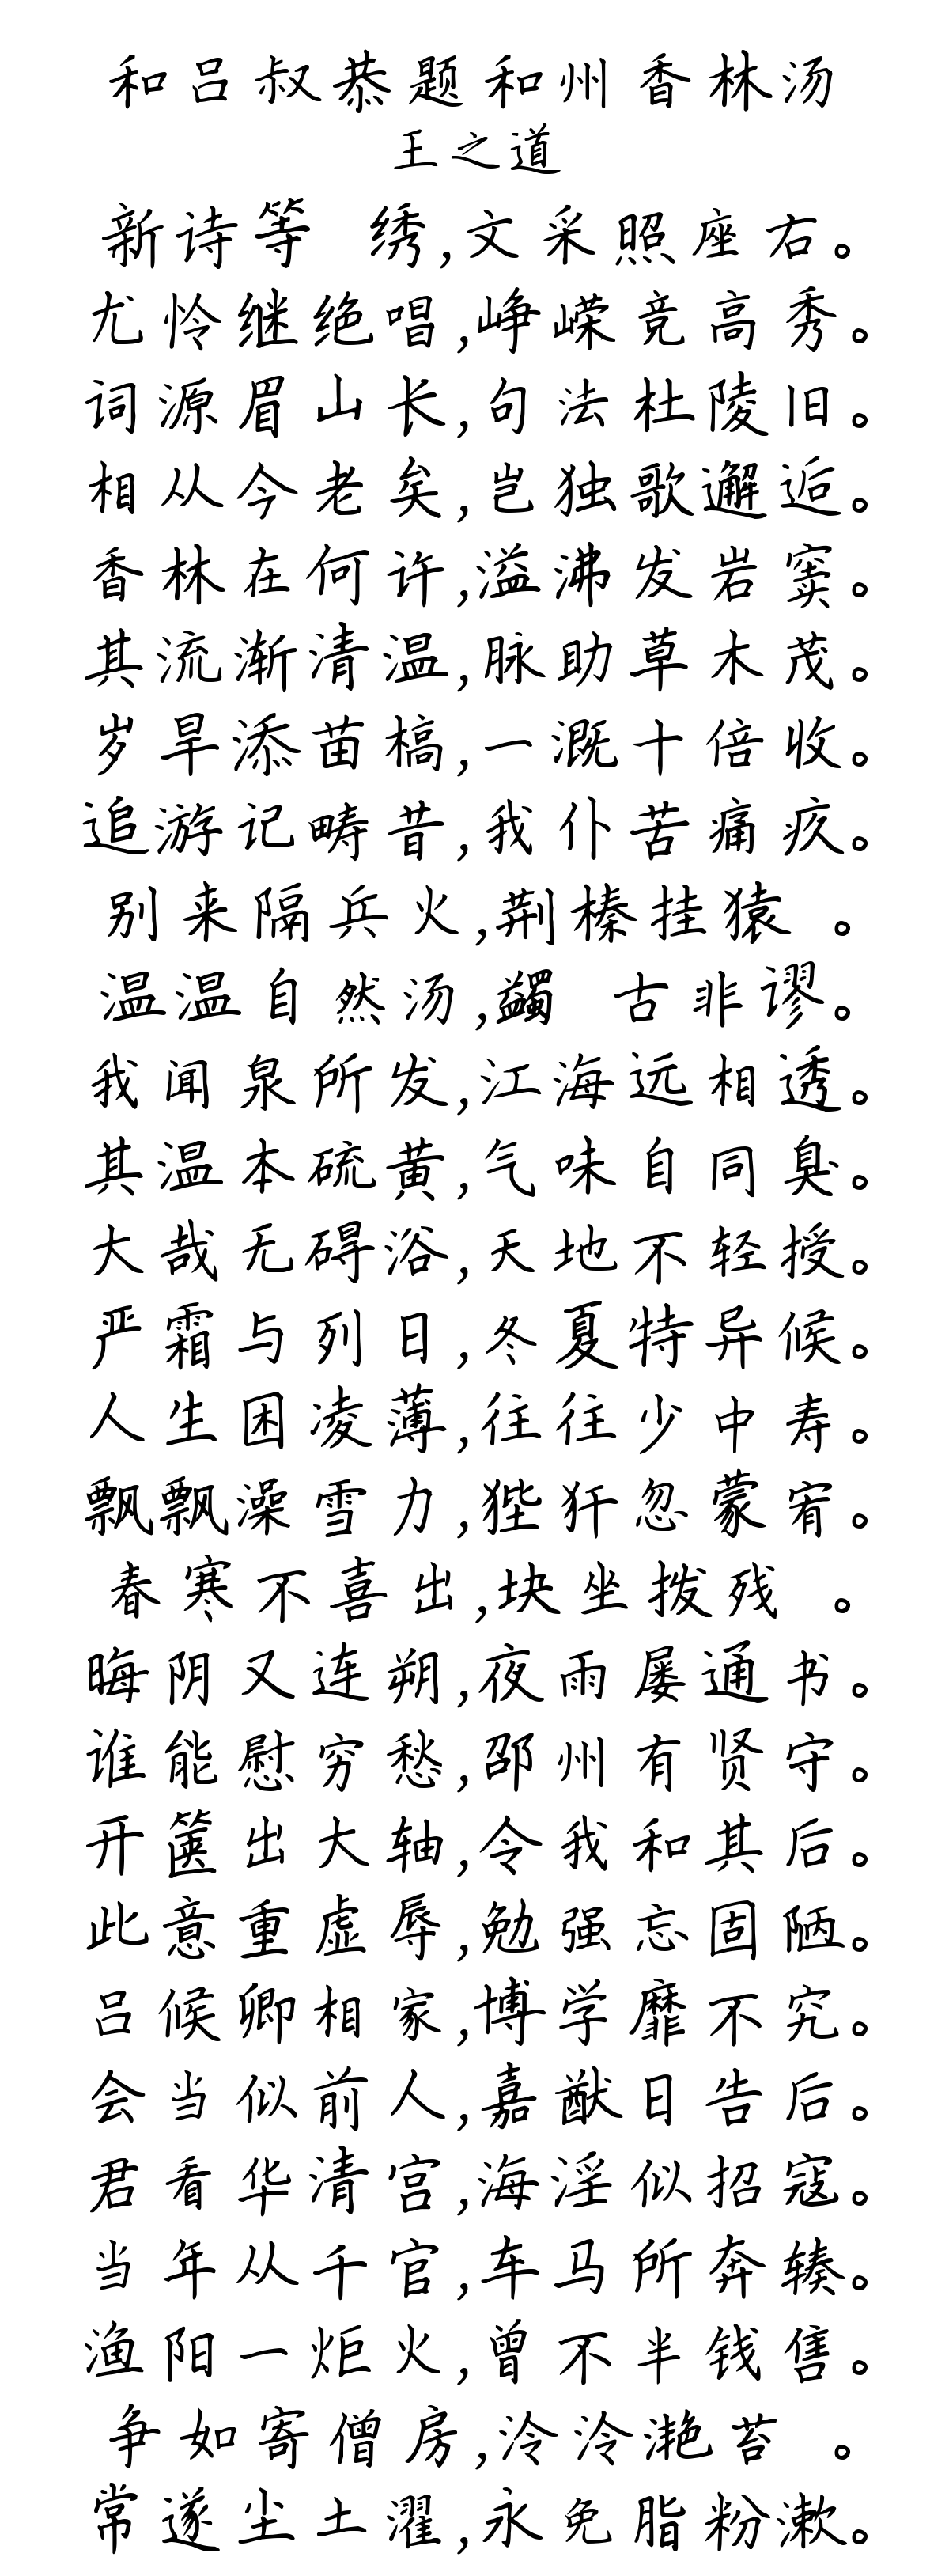 和吕叔恭题和州香林汤
王之道
新诗等 绣,文采照座右。
尤怜继绝唱,峥嵘竞高秀。
词源眉山长,句法杜陵旧。
相从今老矣,岂独歌邂逅。
香林在何许,溢沸发岩窦。
其流渐清温,脉助草木茂。
岁旱添苗槁,一溉十倍收。
追游记畴昔,我仆苦痛疚。
别来隔兵火,荆榛挂猿 。
温温自然汤,蠲 古非谬。
我闻泉所发,江海远相透。
其温本硫黄,气味自同臭。
大哉无碍浴,天地不轻授。
严霜与列日,冬夏特异候。
人生困凌薄,往往少中寿。
飘飘澡雪力,狴犴忽蒙宥。
春寒不喜出,块坐拨残 。
晦阴又连朔,夜雨屡通书。
谁能慰穷愁,邵州有贤守。
开箧出大轴,令我和其后。
此意重虚辱,勉强忘固陋。
吕候卿相家,博学靡不究。
会当似前人,嘉猷日告后。
君看华清宫,海淫似招寇。
当年从千官,车马所奔辏。
渔阳一炬火,曾不半钱售。
争如寄僧房,泠泠滟苔 。
常遂尘土濯,永免脂粉漱。